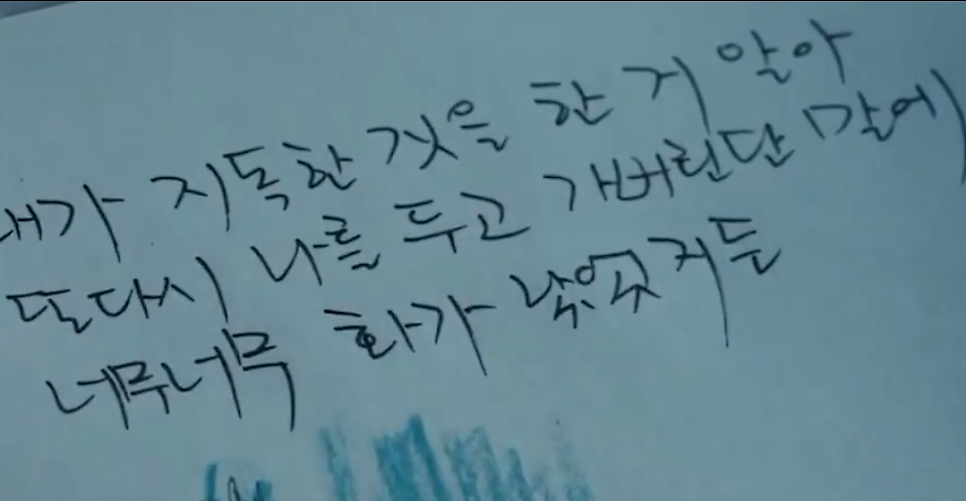 내가 지독한 것을 한 거 알아
또다시 나를 두고 가버린단 말에
너무너무 화가 났었거든